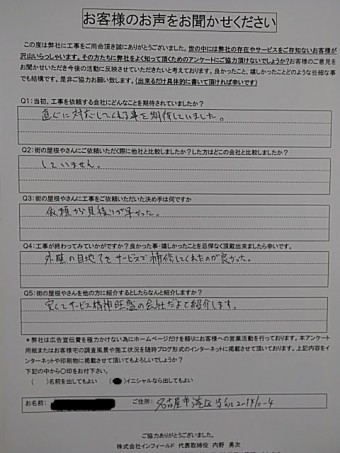 お客様のお声をお聞かせください
この度は弊社に工事をご用命頂き誠にありがとうございました。世の中には弊社の存在やサービスをご存知ないお客様が
沢山いらっしゃいます。その方たちに弊社をよく知って頂くためのアンケートにご協力頂けないでしょうか?お客様のご意見を
お聞かせいただき今後の活動に反映させていただきたいと考えております。良かったこと、嬉しかったことどのような些細な事
でも結構です。是非ご協力お願い致します。(出来るだけ具体的に書いて頂ければ幸いです)
Q1:当初、工事を依頼する会社にどんなことを期待されていましたか?
直ぐに対応してくれる事を期待していました。
Q2:街の屋根やさんにご依頼いただく際に他社と比較しましたか?した方はどこの会社と比較しましたか?
していません。
Q3:街の屋根やさんに工事をご依頼いただいた決め手は何ですか
依頼から見積りが早かった。
Q4:工事が終わってみていかがですか?良かった事・嬉しかったことを忌憚なく頂戴出来ましたら幸いです。
外壁の目地をサービスで補修してくれたのが良かった。
Q5:街の屋根やさんを他の方に紹介するとしたらなんと紹介しますか?
安くてサービス精神旺盛の会社だよと紹介します。
*弊社は広告宣伝費を極力かけない為にホームページだけを頼りにお客様への営業活動を行っております。本アンケート
用紙またはお客様宅の調査風景や施工状況を随時ブログ形式のインターネットに掲載させて頂いております。上記内容をイ
ンターネットや印刷物に掲載させて頂いてもよろしいでしょうか?
下記の中から〇印をお付下さい。
( )名前を出してもよい ( )イニシャルなら出してもよい
お名前: ご住所: 名古屋市港区
ご協力ありがとうございました。
株式会社インフィールド 代表取締役 内野 勇次